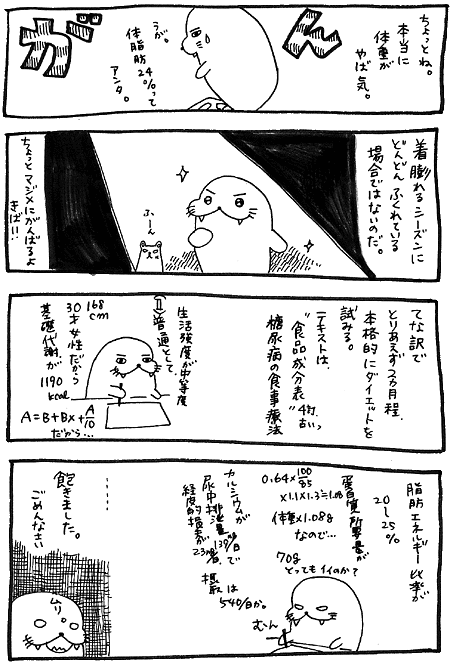 ちょっとね。
本当に
体重が
やば気。
がん
うが。
体脂肪
24%って
アンタ。
着膨れるシーズンに
どんどんふくれている
場合ではないのだ。
ふーん
ちょっとマジメにがんばるよ
きばい!!
てな訳で
とりあえず2カ月程、
本格的にダイエットを
試みる。
テキストは、
"食品成分表"
4訂、古いっ
糖尿病の食事療法
生活強度が中等度
(Ⅱ)普通として、
168
cm
30才女性だから
基礎代謝が
1190
kcal
A=B+Bx+A/10
だから…
脂肪エネルギー比率が
20〜25%
蛋白質所要量が
0.64×100/85
×1.1×1.3≒1.08
体重×1.08g
なので…
70g
とってもイイのか?
カルシウムが
尿中排泄量
139mg/日で
経皮的損失が
23mg/日、
摂取は
540/日か。
むん
……
飽きました。
ごめんなさい
ムリ。